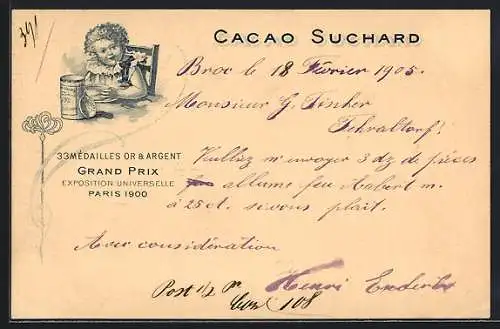 391
CACAO SUCHARD
Broc le 18 Février 1905.
Monsieur G. Fischer
Fehraltorf!
33 MÉDAILLES OR & ARGENT
GRAND PRIX
EXPOSITION UNIVERSELLE
PARIS 1900
Veuillez m'envoyer 3 dz de pièces
allume feu m.
à 25 ct. sivous plait.
Avec considération
Henri
Post 1/2
108